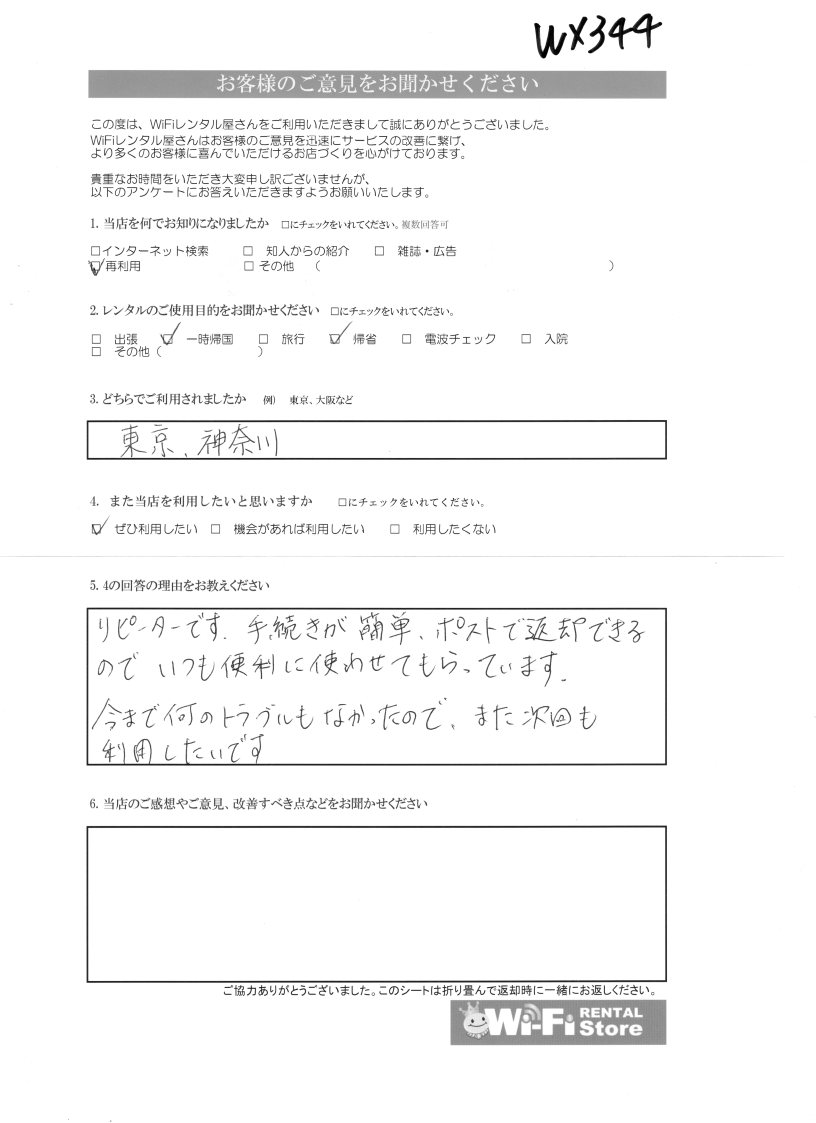 WX344
お客様のご意見をお聞かせください
この度は、WiFiレンタル屋さんをご利用いただきまして誠にありがとうございました。
WiFiレンタル屋さんはお客様のご意見を迅速にサービスの改善に繋げ、
より多くのお客様に喜んでいただけるお店づくりを心がけております。
貴重なお時間をいただき大変申し訳ございませんが、
以下のアンケートにお答えいただきますようお願いいたします。
1. 当店を何でお知りになりましたか □にチェックをいれてください。複数回答可
□インターネット検索 □ 知人からの紹介 □ 雑誌・広告
☑再利用 □ その他 ( )
2. レンタルのご使用目的をお聞かせください □にチェックをいれてください。
□ 出張 ☑ 一時帰国 □ 旅行 ☑ 帰省 □ 電波チェック □ 入院
□ その他 ( )
3. どちらでご利用されましたか 例) 東京、大阪など
東京、神奈川
4. また当店を利用したいと思いますか □にチェックをいれてください。
☑ ぜひ利用したい □ 機会があれば利用したい □ 利用したくない
5. 4の回答の理由をお教えください
リピーターです。手続きが簡単、ポストで返却できる
ので いつも便利に使わせてもらっています。
今まで何のトラブルもなかったので、また次回も
利用したいです
6. 当店のご感想やご意見、改善すべき点などをお聞かせください
ご協力ありがとうございました。このシートは折り畳んで返却時に一緒にお返しください。
Wi-Fi RENTAL Store